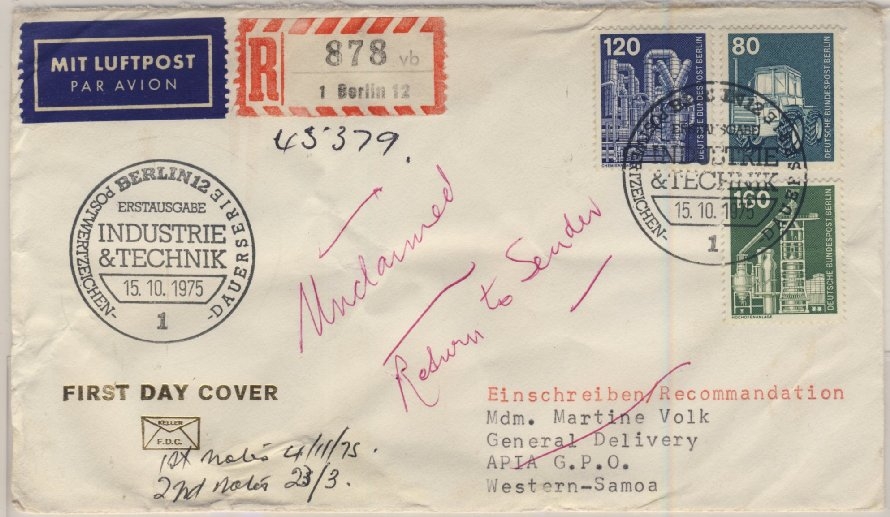 MIT LUFTPOST
PAR AVION
R
878 vb
1 Berlin 12
45379.
120
DEUTSCHE BUNDESPOST BERLIN
80
DEUTSCHE BUNDESPOST BERLIN
160
DEUTSCHE BUNDESPOST BERLIN
HOCHOFENANLAGE
BERLIN 12
ERSTAUSGABE
INDUSTRIE
& TECHNIK
15.10.1975
1
POSTWERTZEICHEN-
-DAUERSERIE
BERLIN 12
ERSTAUSGABE
INDUSTRIE
& TECHNIK
15. 10. 1975
1
POSTWERTZEICHEN-
-DAUERSERIE
Unclaimed
Return to Sender
FIRST DAY COVER
KELLER
F.D.C.
1st notis 4/11/75.
2nd notis 23/3.
Einschreiben/Recommandation
Mdm. Martine Volk
General Delivery
APIA G.P.O.
Western-Samoa